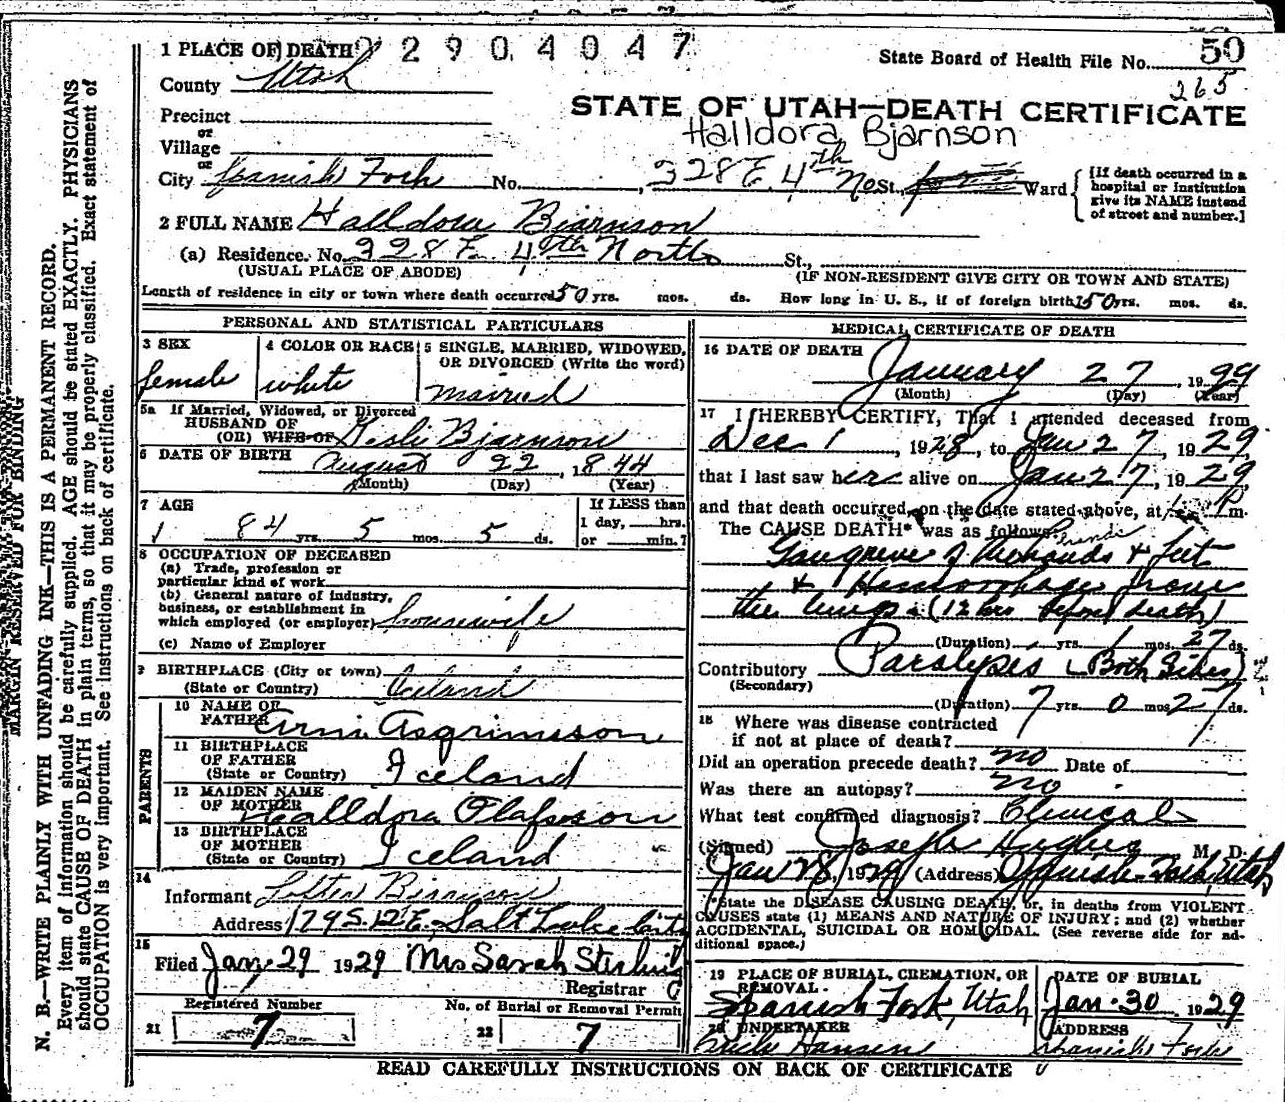 50
State Board of Health File No.
265
1 PLACE OF DEATH 2 2 9 0 4 0 4 7
County Utah
STATE OF UTAH—DEATH CERTIFICATE
Precinct
or
Halldora Bjarnson
Village
or
City Spanish Fork No. 328 E. 4th No St., Ward
[If death occurred in a
hospital or institution
give its NAME instead
of street and number.]
2 FULL NAME Halldora Bjarnson
(a) Residence. No. 328 E. 4th North St.,
(USUAL PLACE OF ABODE) (IF NON-RESIDENT GIVE CITY OR TOWN AND STATE)
Length of residence in city or town where death occurred 50 yrs. mos. ds. How long in U. S., if of foreign birth 50 yrs. mos. ds.
PERSONAL AND STATISTICAL PARTICULARS
3 SEX 4 COLOR OR RACE 5 SINGLE, MARRIED, WIDOWED,
OR DIVORCED (Write the word)
female white married
5a If Married, Widowed, or Divorced
HUSBAND OF
(OR) WIFE OF Bjarnson
6 DATE OF BIRTH August 22, 1844
(Month) (Day) (Year)
7 AGE If LESS than
1 day, hrs.
84 yrs. 5 mos. 5 ds. or min.?
8 OCCUPATION OF DECEASED
(a) Trade, profession or
particular kind of work
(b) General nature of industry,
business, or establishment in
which employed (or employer) housewife
(c) Name of Employer
9 BIRTHPLACE (City or town) Iceland
(State or Country)
PARENTS
10 NAME OF
FATHER Arni Asgrimsson
11 BIRTHPLACE
OF FATHER
(State or Country) Iceland
12 MAIDEN NAME
OF MOTHER Halldora Olafsson
13 BIRTHPLACE
OF MOTHER
(State or Country) Iceland
14
Informant Bjarnson
Address 179 S. 12 E. Salt Lake City
15
Filed Jan 29 1929 Mrs Sarah Sterling
Registrar
Registered Number No. of Burial or Removal Permit
21 7 22 7
MEDICAL CERTIFICATE OF DEATH
16 DATE OF DEATH
January 27, 1929
(Month) (Day) (Year)
17 I HEREBY CERTIFY, That I attended deceased from
Dec 1, 1928, to Jan 27, 1929
that I last saw her alive on Jan 27, 1929
and that death occurred, on the date stated above, at P m.
The CAUSE DEATH* was as follows:
Gangrene of the hands & feet
& Hemorrhage from
the lungs (12 hrs before death)
(Duration) yrs. 1 mos. 27 ds.
Contributory Paralysis (Both Sides)
(Secondary)
(Duration) 7 yrs. 0 mos. 27 ds.
18 Where was disease contracted
if not at place of death?
Did an operation precede death? no Date of
Was there an autopsy? no
What test confirmed diagnosis? Clinical
(Signed) Joseph Hughes M. D.
Jan 28, 1929 (Address) Spanish Fork, Utah
*State the DISEASE CAUSING DEATH, or, in deaths from VIOLENT
CAUSES state (1) MEANS AND NATURE OF INJURY; and (2) whether
ACCIDENTAL, SUICIDAL OR HOMICIDAL. (See reverse side for ad-
ditional space.)
19 PLACE OF BURIAL, CREMATION, OR
REMOVAL
Spanish Fork, Utah
DATE OF BURIAL
Jan. 30 1929
20 UNDERTAKER ADDRESS
Hansen Spanish Fork
READ CAREFULLY INSTRUCTIONS ON BACK OF CERTIFICATE
MARGIN RESERVED FOR BINDING
N. B.—WRITE PLAINLY WITH UNFADING INK—THIS IS A PERMANENT RECORD.
Every item of information should be carefully supplied. AGE should be stated EXACTLY. PHYSICIANS
should state CAUSE OF DEATH in plain terms, so that it may be properly classified. Exact statement of
OCCUPATION is very important. See instructions on back of certificate.